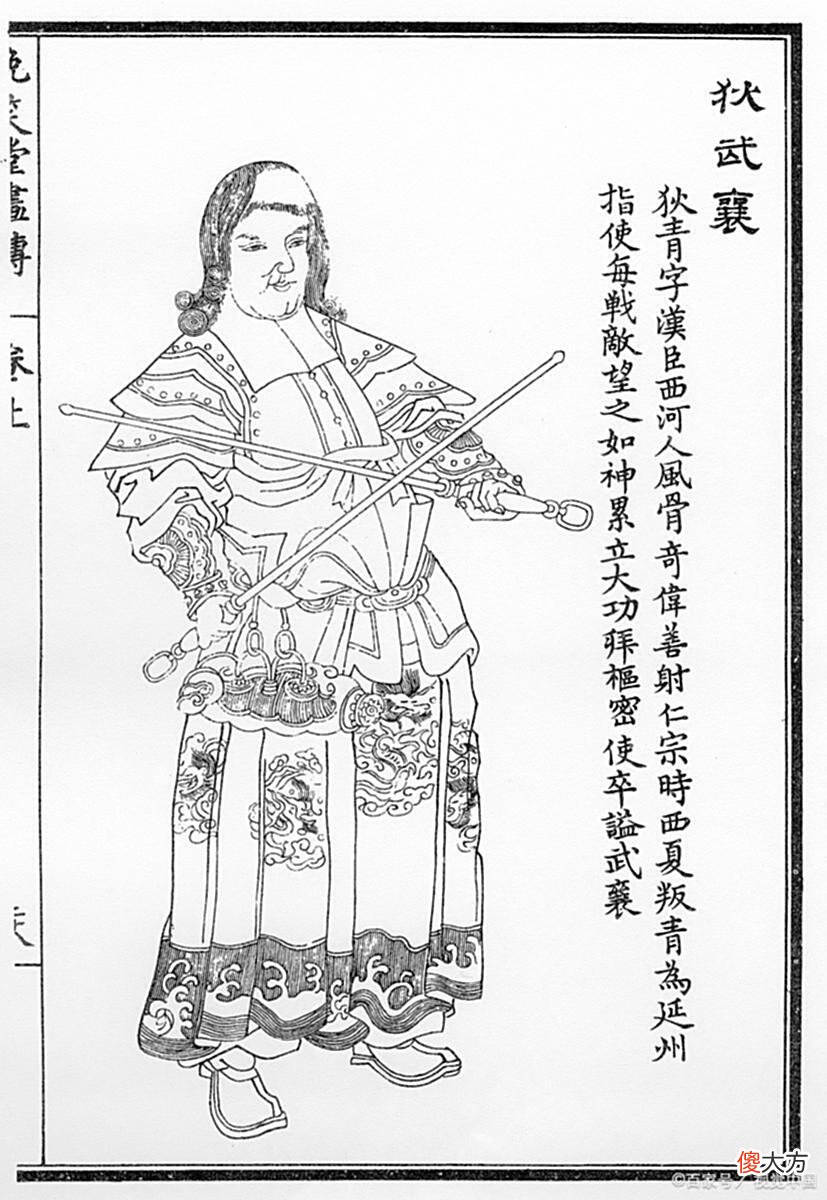 狄武襄
狄青字漢臣西河人風骨奇偉善射仁宗時西夏叛青為延州
指使每戰敵望之如神累立大功拜樞密使卒諡武襄
晚笑堂畫傳
卷上
傻大方
©百家号/视觉中国